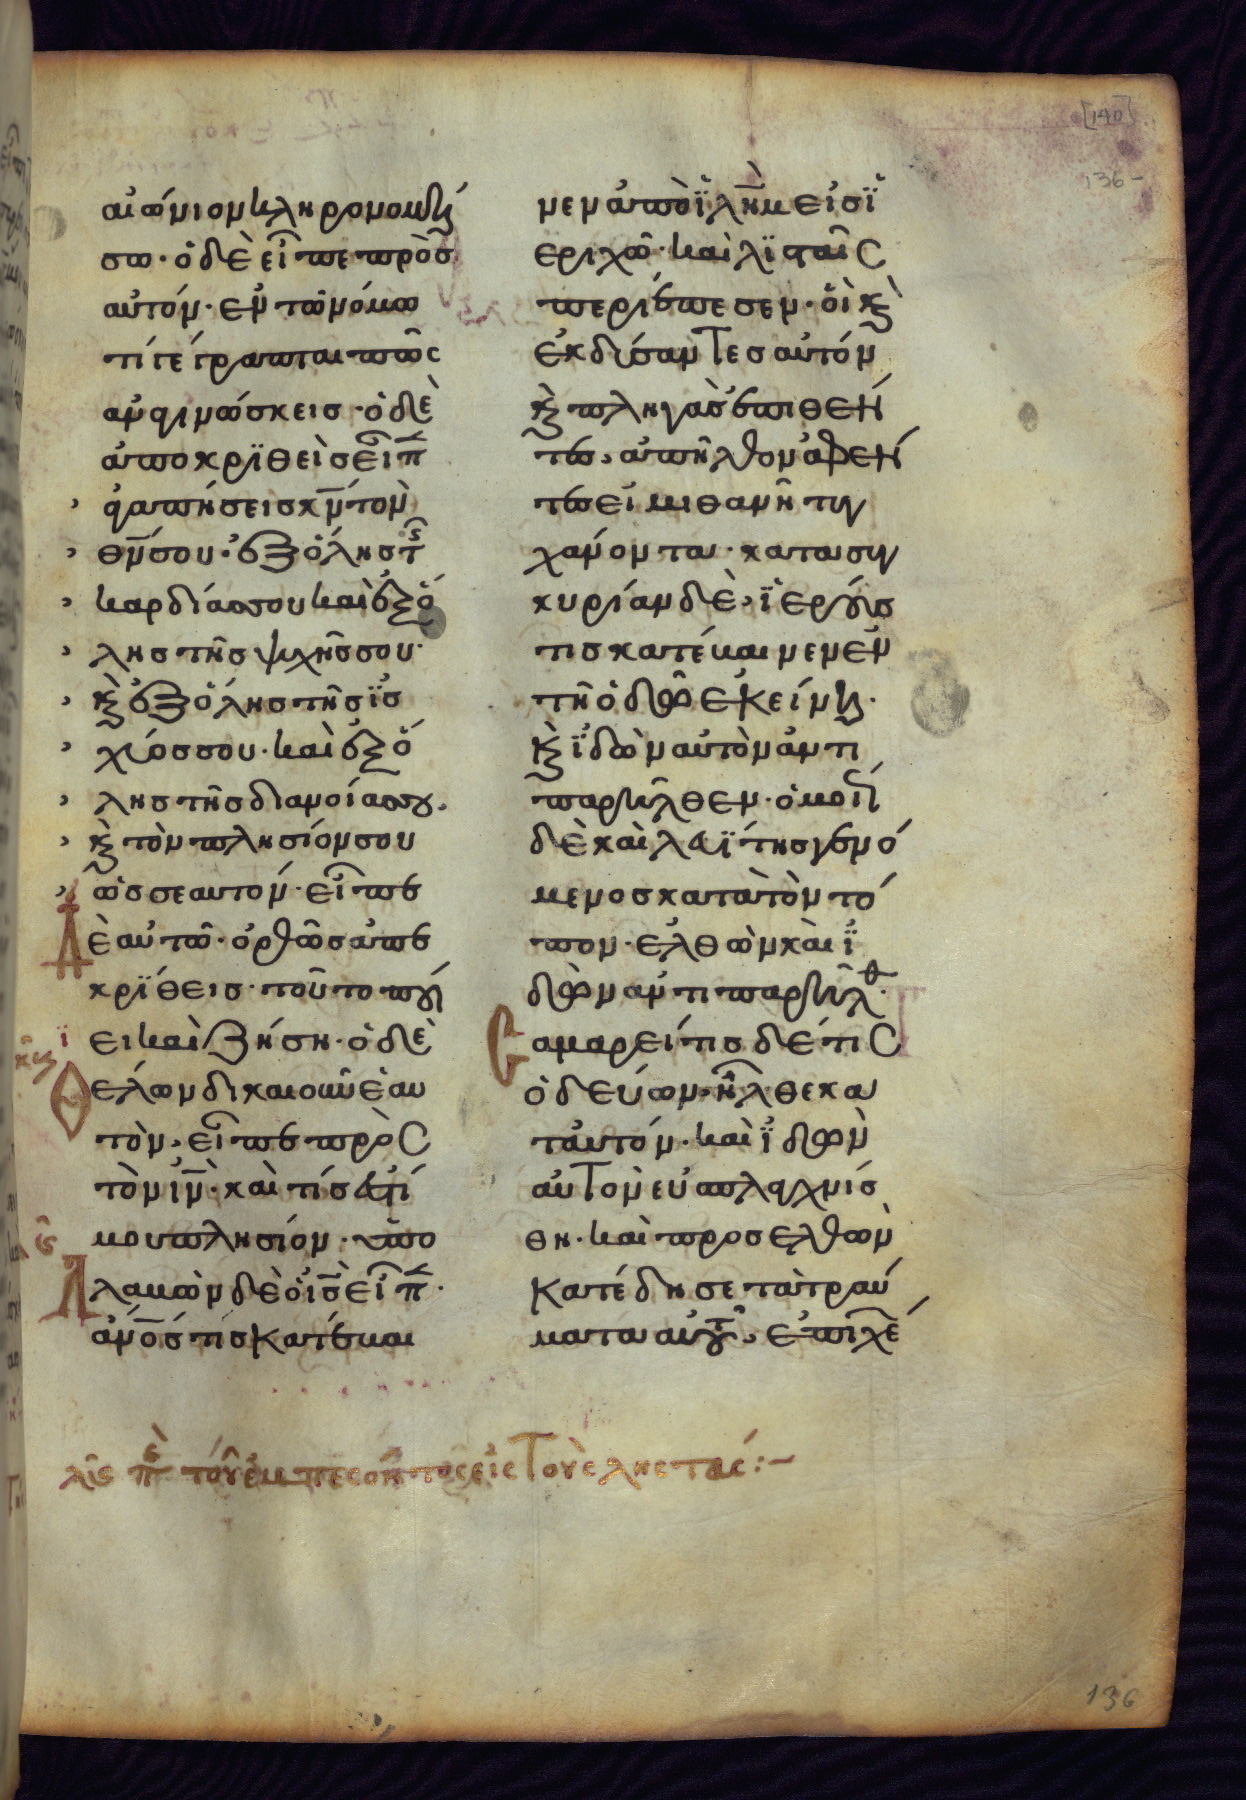 [140]
136-
αἰώνιον κληρονομή
σω· ὁ δὲ εἶπε πρὸσ
αὐτόν· ἐν τῶ νόμω
τί γέγραπται πῶς
ἀναγινώσκεισ· ὁ δὲ
ἀποκρϊθεὶσ εἶπ
ἀγαπήσεισ κν̅ τὸν
θν̅ σου· ἐξ ὅλησ τῆς
καρδίασ σου καὶ ἐξ ὅ
λησ τῆσ ψυχῆσ σου·
κ̀ ἐξ ὅλησ τῆσ ϊσ
χύοσ σου· καὶ ἐξ ὅ
λησ τῆσ διανοίασ σου.
κ̀ τὸν πλησίον σου
ὡσ σεαυτόν· εἶπε
Δὲ αὐτῶ· ὀρθῶσ ἀπε
κρϊθεισ· τοῦτο ποί
ει καὶ ζήση· ὁ δὲ
Θέλων δικαιοῦν ἑαυ
τὸν, εἶπε πρὸς
τὸν ιν̅· καὶ τίσ ἐστί
μου πλησίον· ὑπο
Λαβὼν δὲ ὁ ισ̅ εἶπ·
ανο̅σ τισ κατέβαι
νεν ἀπὸ ϊλη̅μ εἰσ ϊ
εριχῶ· καὶ λϊσταῖς
περιέπεσεν· οἳ κ̀
ἐκδύσαντεσ αὐτόν
κ̀ πληγὰσ ἐπιθέν
τεσ, ἀπῆλθον ἀφέν
τεσ ἡμιθανῆ τυγ
χάνοντα· κατὰ συγ
κυρίαν δὲ, ϊερεύσ
τισ κατέβαινεν ἐν
τῆ ὁδῶ ἐκείνη·
κ̀ ϊδὼν αὐτὸν ἀντι
παρῆλθεν· ὁμοί
δὲ καὶ λευϊτησ γενό
μενοσ κατὰ τὸν τό
πον· ἐλθὼν καὶ ϊ
δὼν ἀντιπαρῆλθ·
Σαμαρείτισ δέ τις
ὁδεύων, ἦλθε κα
τ αυτόν· καὶ ϊδὼν
αὐτὸν ἐυσπλαγχνίσ
θη· καὶ προσελθὼν
κατέδησε τὰ τραύ
ματα αὐτοῦ, ἐπιχέ
περὶ τοῦ ἐμπεσόντος εἰς τοὺς λῃστάς:-
136